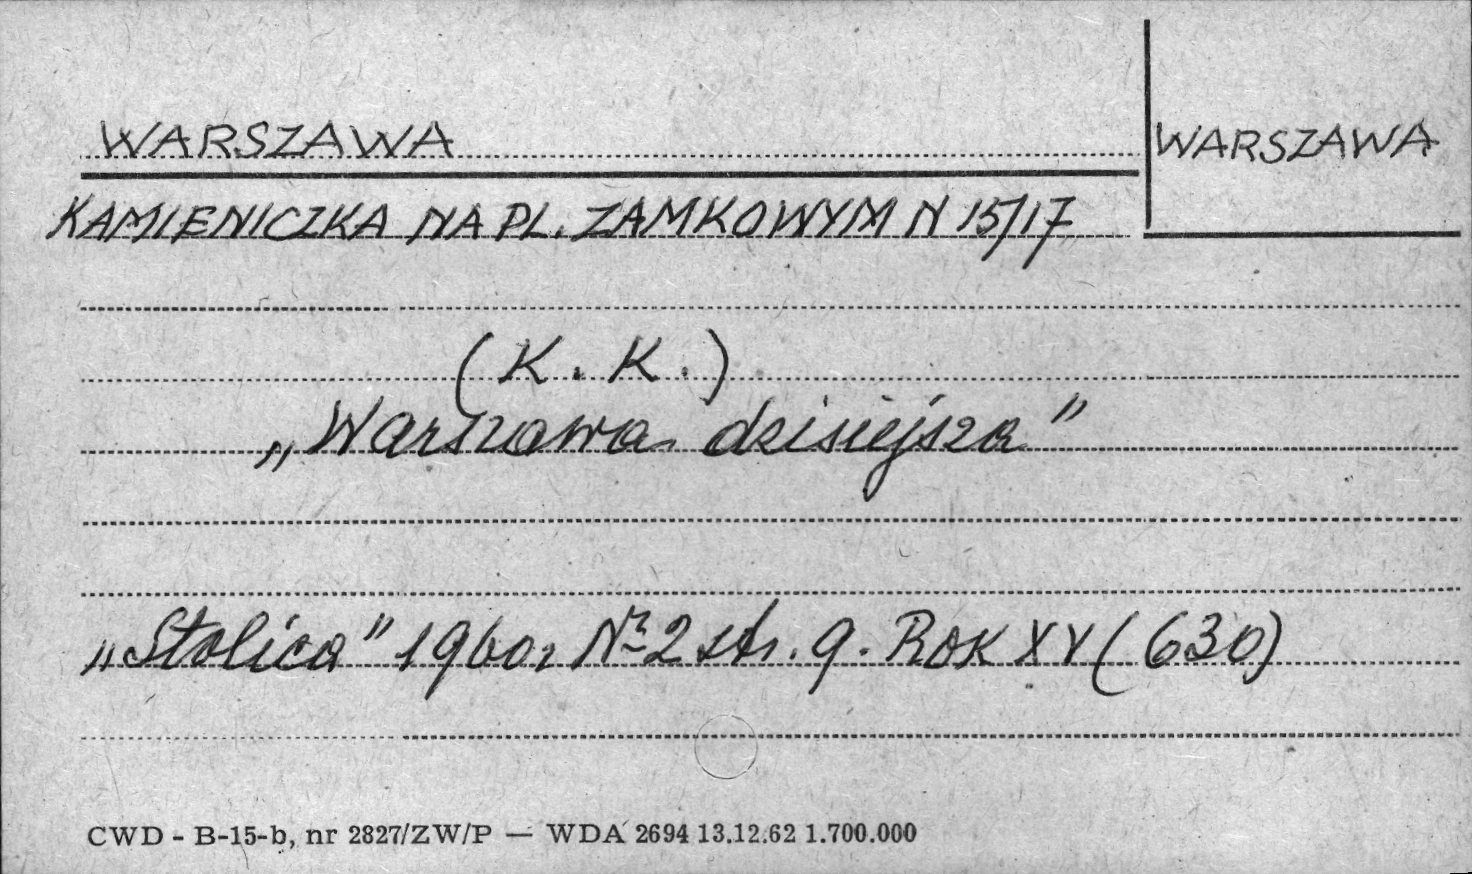 WARSZAWA
WARSZAWA
KAMIENICZKA NA PL. ZAMKOWYM N 15/17
(K. K.)
„Warszawa dzisiejsza”
„Stolica” 1960r Nr 2 str. 9. ROK XV (630)
CWD - B-15-b, nr 2827/ZW/P — WDA 2694 13.12.62 1.700.000